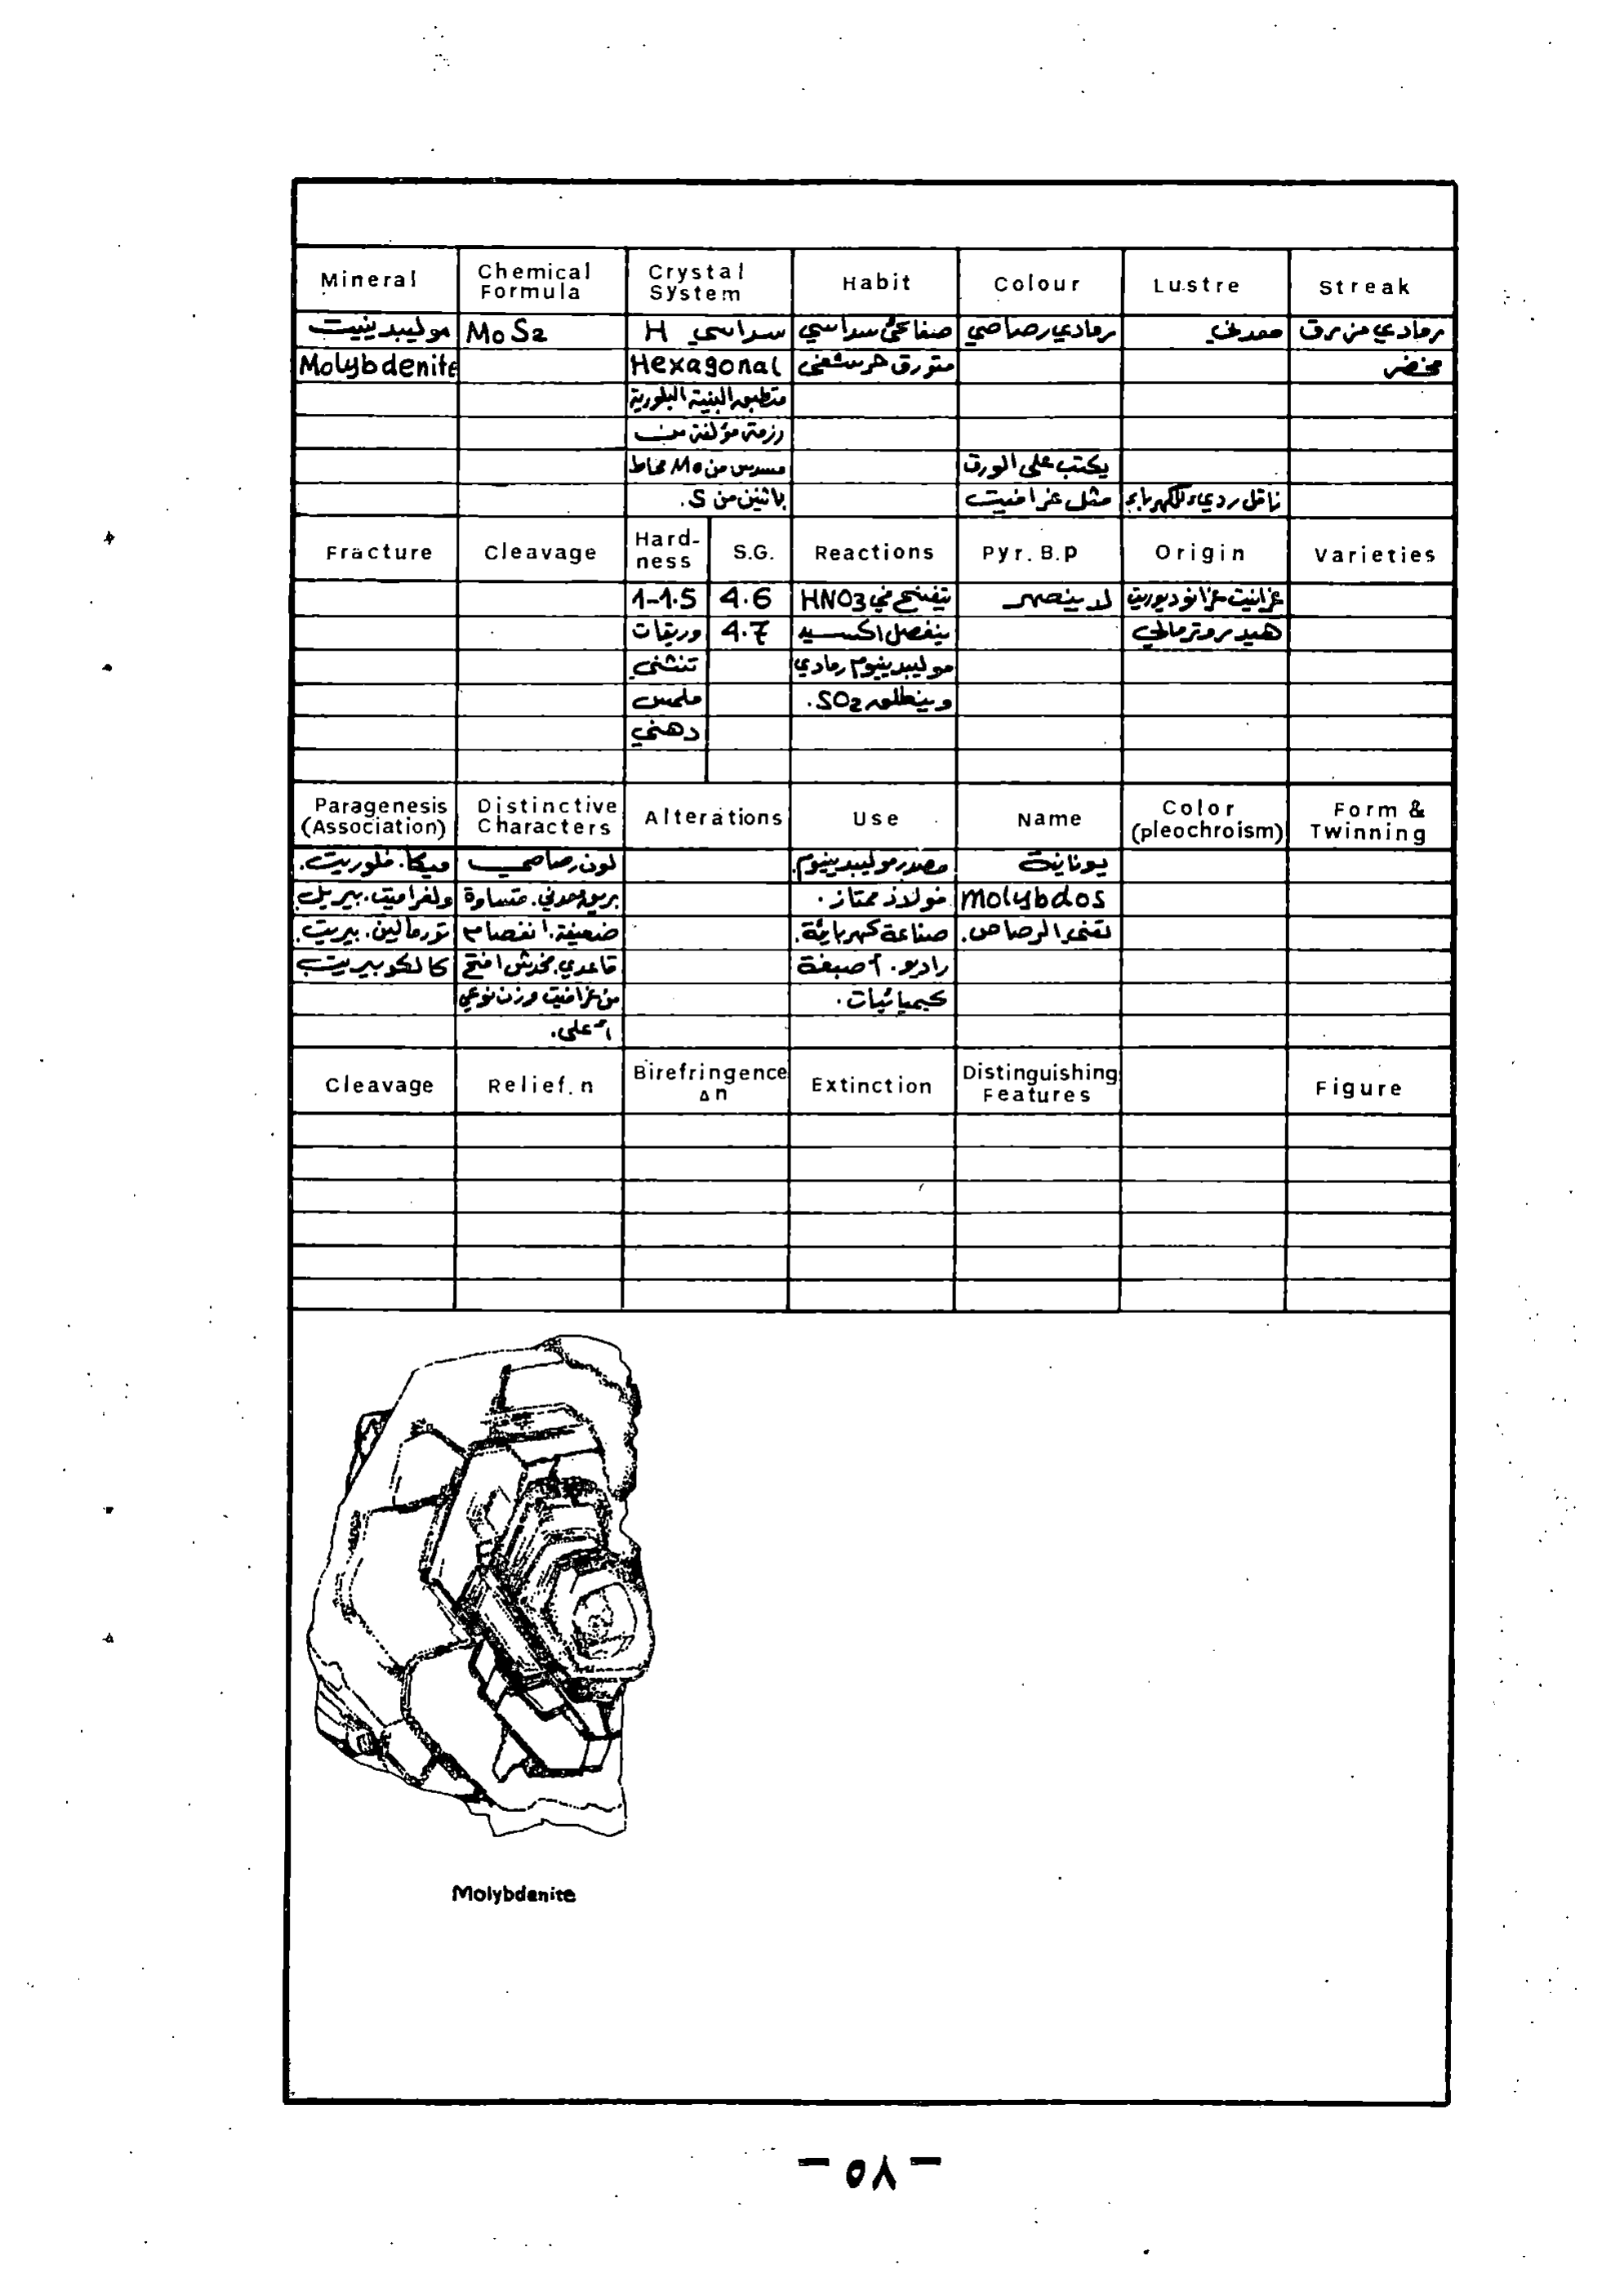 Mineral	Chemical Formula	Crystal System	Habit	Colour	Lustre	Streak
موليبدينيت	MoS2	سداسي H	صفائحي سداسي	رمادي رصاصي	معدني	رمادي مزرق
Molybdenite		Hexagonal	متورق حرشفي			مخضر
		متطبق البنية البلورية
		رزمة مؤلفة من
		مسدس من Mo محاط		يكتب على الورق
		باثنين من S.		مثل غرافيت	ناقل رديء للكهرباء
Fracture	Cleavage	Hard-ness	S.G.	Reactions	Pyr. B.p	Origin	Varieties
		1-1.5	4.6	يتفتح في HNO3	لا ينصهر	غرانيت غرانوديوريت
		وريقات	4.7	ينفصل اكسيد		هيدروترمالي
		تنثني		موليبدينيوم رمادي
		ملمس		وينطلق SO2.
		دهني
Paragenesis (Association)	Distinctive Characters	Alterations	Use	Name	Color (pleochroism)	Form & Twinning
ميكا. فلوريت.	لون رصاصي		مصدر موليبدينيوم.	يونانية
ولفراميت. بيريل.	بريق معدني. قساوة		فولاذ ممتاز.	molybdos
تورمالين. بيريت.	ضعيفة. انفصام		صناعة كهربائية.	تعني الرصاص.
كالكوبيريت	قاعدي. مخدش افتح		راديو. أصبغة
	من غرافيت وزن نوعي		كيميائيات.
	أعلى.
Cleavage	Relief. n	Birefringence Δn	Extinction	Distinguishing Features		Figure
Molybdenite
- ٥٨ -